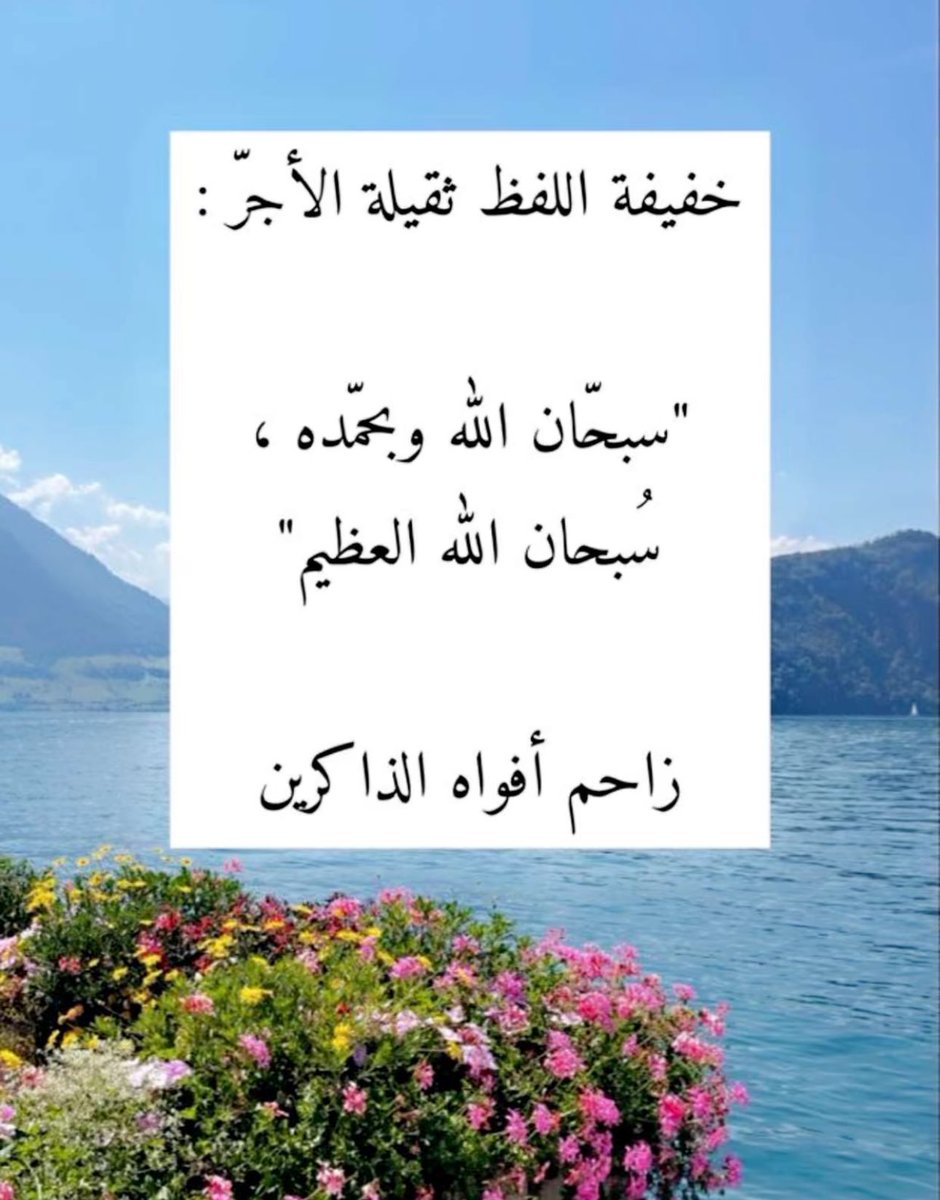 خفيفة اللفظ ثقيلة الأجرّ :
"سبحّان الله وبحمّده ،
سُبحان الله العظيم"
زاحم أفواه الذاكرين